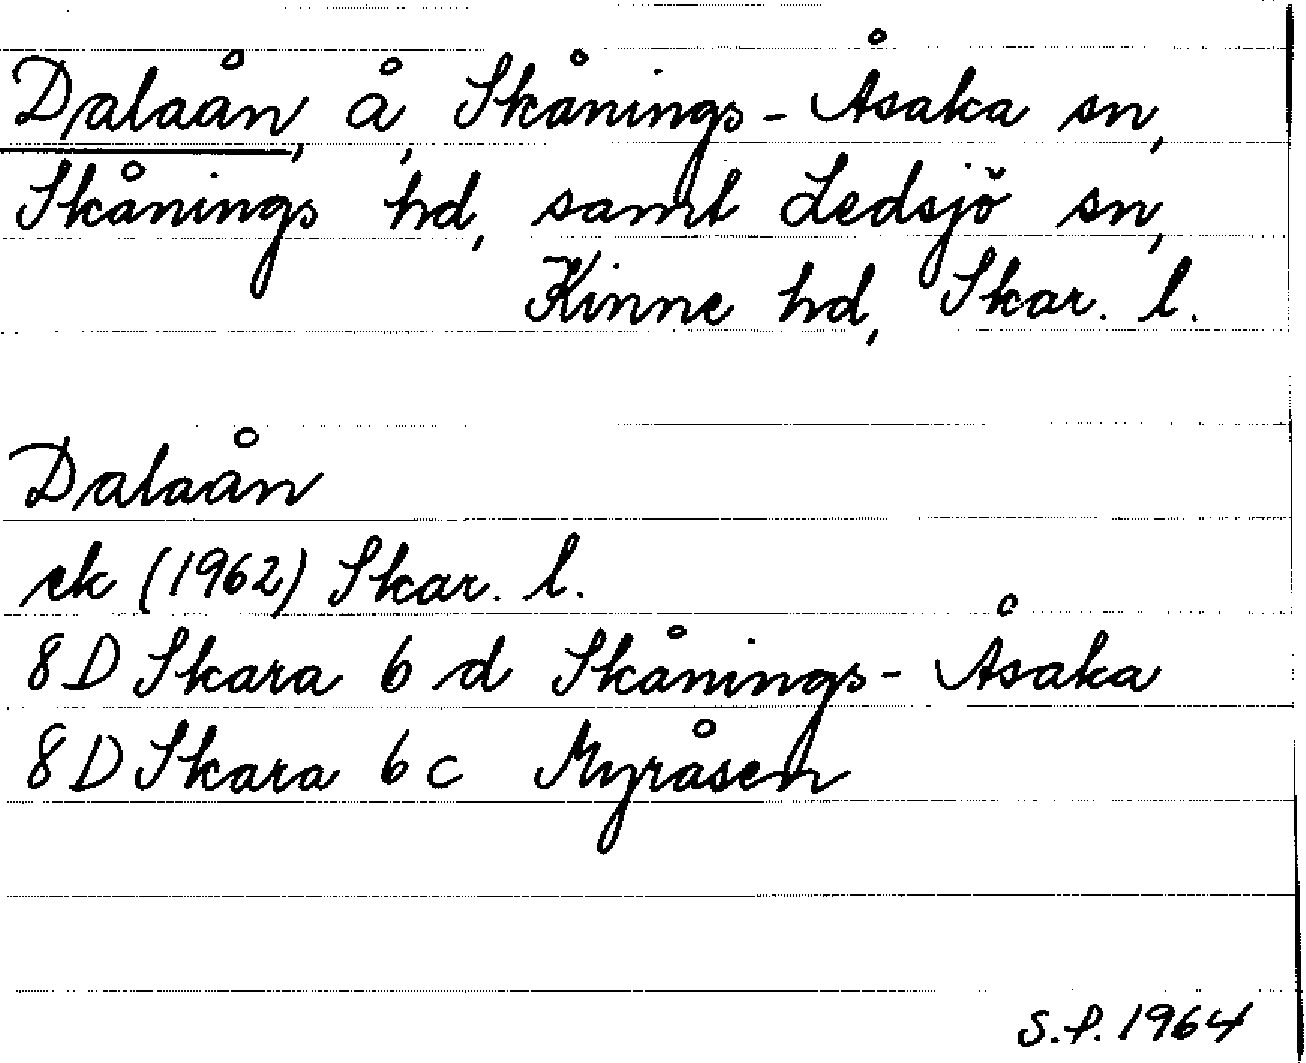 Dalaån, å, Skånings-Åsaka sn,
Skånings hd, samt Ledsjö sn,
Kinne hd, Skar. l.
Dalaån
ek (1962) Skar. l.
8D Skara 6 d Skånings-Åsaka
8D Skara 6 c Myråsen
S.P. 1964